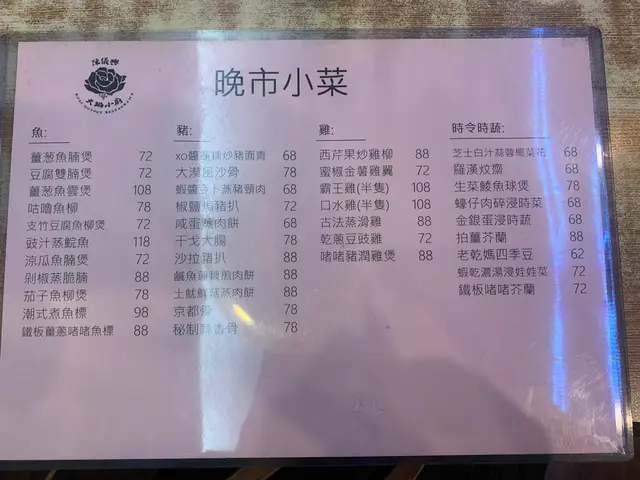 陳儀興
火鍋小廚
晚市小菜
魚:
薑葱魚腩煲 72
豆腐雙腩煲 72
薑葱魚雲煲 108
咕嚕魚柳 78
支竹豆腐魚柳煲 72
豉汁蒸鯇魚 118
涼瓜魚腩煲 72
剁椒蒸脆腩 88
茄子魚柳煲 78
潮式煮魚標 98
鐵板薑蔥啫啫魚標 88
豬:
xo醬蓮藕炒豬面青 68
大漠風沙骨 78
蝦醬豆卜蒸豬頸肉 68
椒鹽焗豬扒 72
咸蛋蒸肉餅 68
干戈大腸 78
沙拉豬扒 88
鹹魚蓮藕煎肉餅 88
土魷鮮菇蒸肉餅 88
京都骨 78
秘制蒜香骨 78
雞:
西芹果炒雞柳 88
蜜椒金薯雞翼 72
霸王雞(半隻) 108
口水雞(半隻) 108
古法蒸滑雞 88
乾蔥豆豉雞 72
啫啫豬潤雞煲 88
時令時蔬:
芝士白汁蒜蓉椰菜花 68
羅漢炆齋 68
生菜鯪魚球煲 78
蠔仔肉碎浸時菜 68
金銀蛋浸時蔬 68
拍薑芥蘭 88
老乾媽四季豆 62
蝦乾濃湯浸娃娃菜 72
鐵板啫啫芥蘭 72